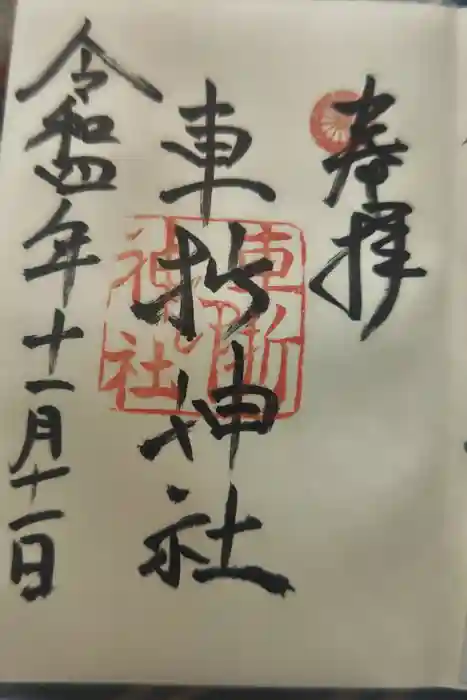 奉拝
車折神社
車折神社
令和四年十一月十一日